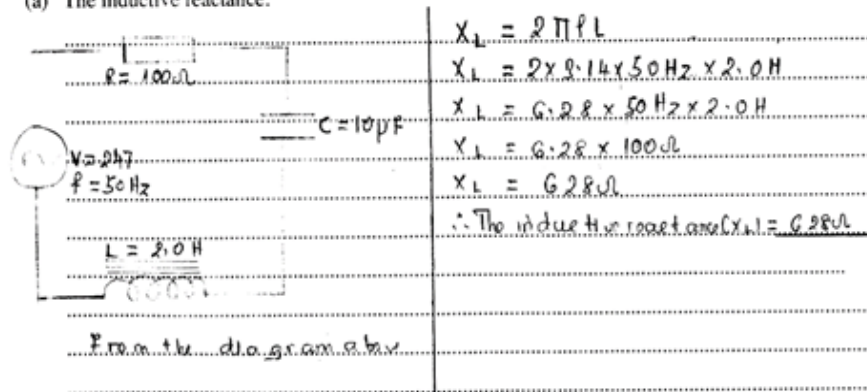 (a) The inductive reactance.
R = 100Ω
C = 10µF
V = 247
f = 50 Hz
L = 2.0 H
From the diagram above
X_L = 2πfL
X_L = 2 x 3.14 x 50 Hz x 2.0 H
X_L = 6.28 x 50 Hz x 2.0 H
X_L = 6.28 x 100Ω
X_L = 628Ω
∴ The inductive reactance (X_L) = 628Ω